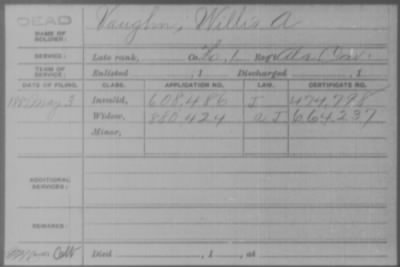 DEAD
NAME OF SOLDIER: Vaughn, Willis A
SERVICE: Late rank, Co. 1 Reg't Cav.
TERM OF SERVICE: Enlisted , 1 Discharged , 1
DATE OF FILING. CLASS. APPLICATION NO. LAW. CERTIFICATE NO.
May 3 Invalid, 608,486 J 474,798
Widow, 880424 J 664,237
Minor,
ADDITIONAL SERVICES:
REMARKS:
Died , 1 , at